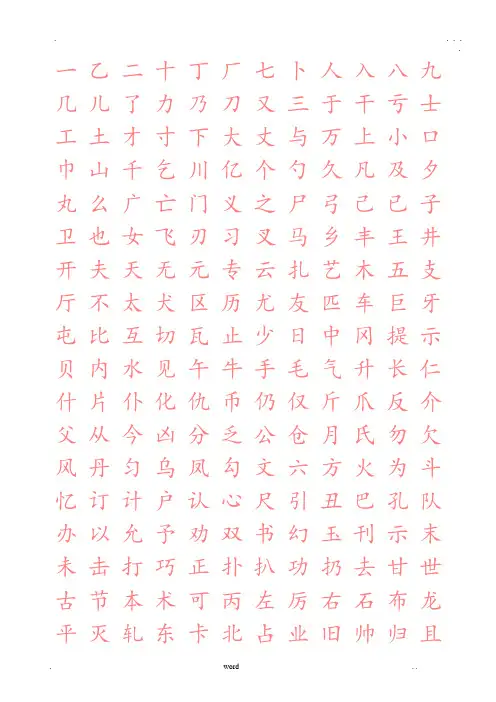 . . . .
.
一 乙 二 十 丁 厂 七 卜 人 入 八 九
几 儿 了 力 乃 刀 又 三 于 干 亏 士
工 土 才 寸 下 大 丈 与 万 上 小 口
巾 山 千 乞 川 亿 个 勺 久 凡 及 夕
丸 么 广 亡 门 义 之 尸 弓 己 已 子
卫 也 女 飞 刃 习 叉 马 乡 丰 王 井
开 夫 天 无 元 专 云 扎 艺 木 五 支
厅 不 太 犬 区 历 尤 友 匹 车 巨 牙
屯 比 互 切 瓦 止 少 日 中 冈 提 示
贝 内 水 见 午 牛 手 毛 气 升 长 仁
什 片 仆 化 仇 币 仍 仅 斤 爪 反 介
父 从 今 凶 分 乏 公 仓 月 氏 勿 欠
风 丹 匀 乌 凤 勾 文 六 方 火 为 斗
忆 订 计 户 认 心 尺 引 丑 巴 孔 队
办 以 允 予 劝 双 书 幻 玉 刊 示 末
未 击 打 巧 正 扑 扒 功 扔 去 甘 世
古 节 本 术 可 丙 左 厉 右 石 布 龙
平 灭 轧 东 卡 北 占 业 旧 帅 归 且
. word . .